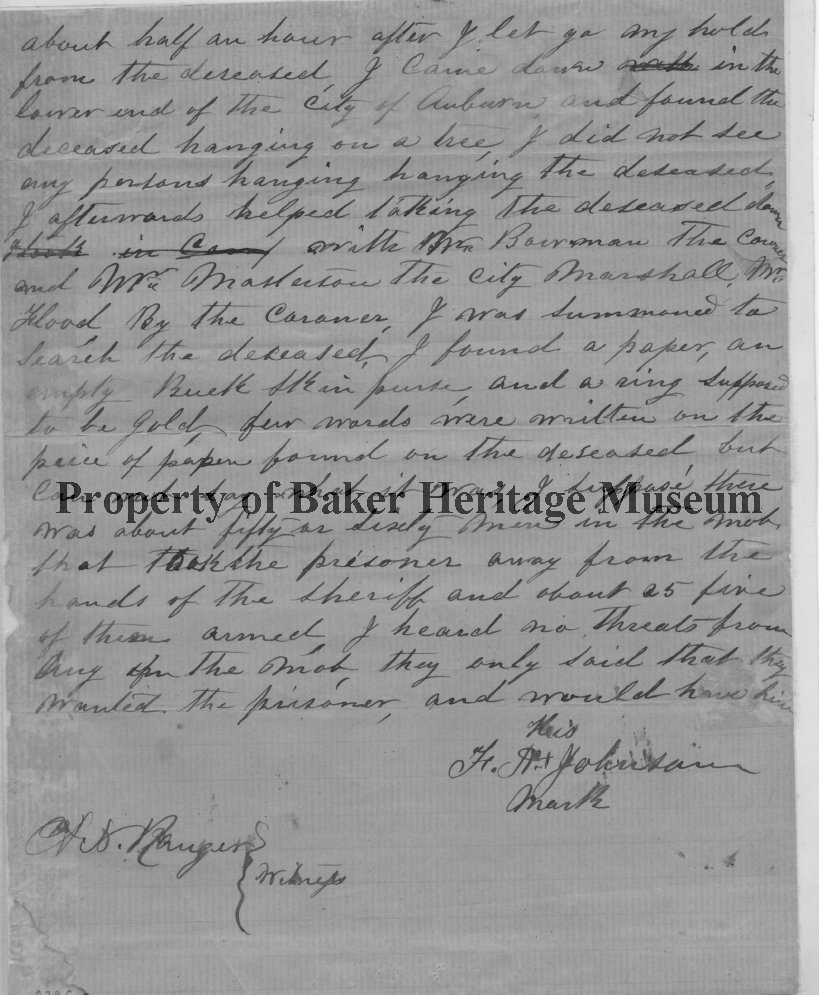 about half an hour after I let go my holds
from the deseased, I came down with in the
lower end of the City of Auburn, and found the
deceased hanging on a tree, I did not see
any persons hanging hanging the deseased,
I afterwards helped taking the deseased down
in Camp with Mr. Bowman the Coroner
and Mr. Masterson the City Marshall, Mr.
Flood, By the Coroner, I was summoned to
Search the deseased, I found a paper, an
empty Buck Skin purse, and a ring supposed
to be Gold, few words were written on the
peice of paper found on the deseased but
Can not say what it was, I suppose there
was about fifty or sixty men in the mob,
that took the prisoner away from the
hands of the Sheriff and about 25 five
of them armed, I heard no threats from
any in the mob, they only said that they
wanted the prisoner, and would have him
His
F. A. + Johnson
Mark
Witness
Property of Baker Heritage Museum